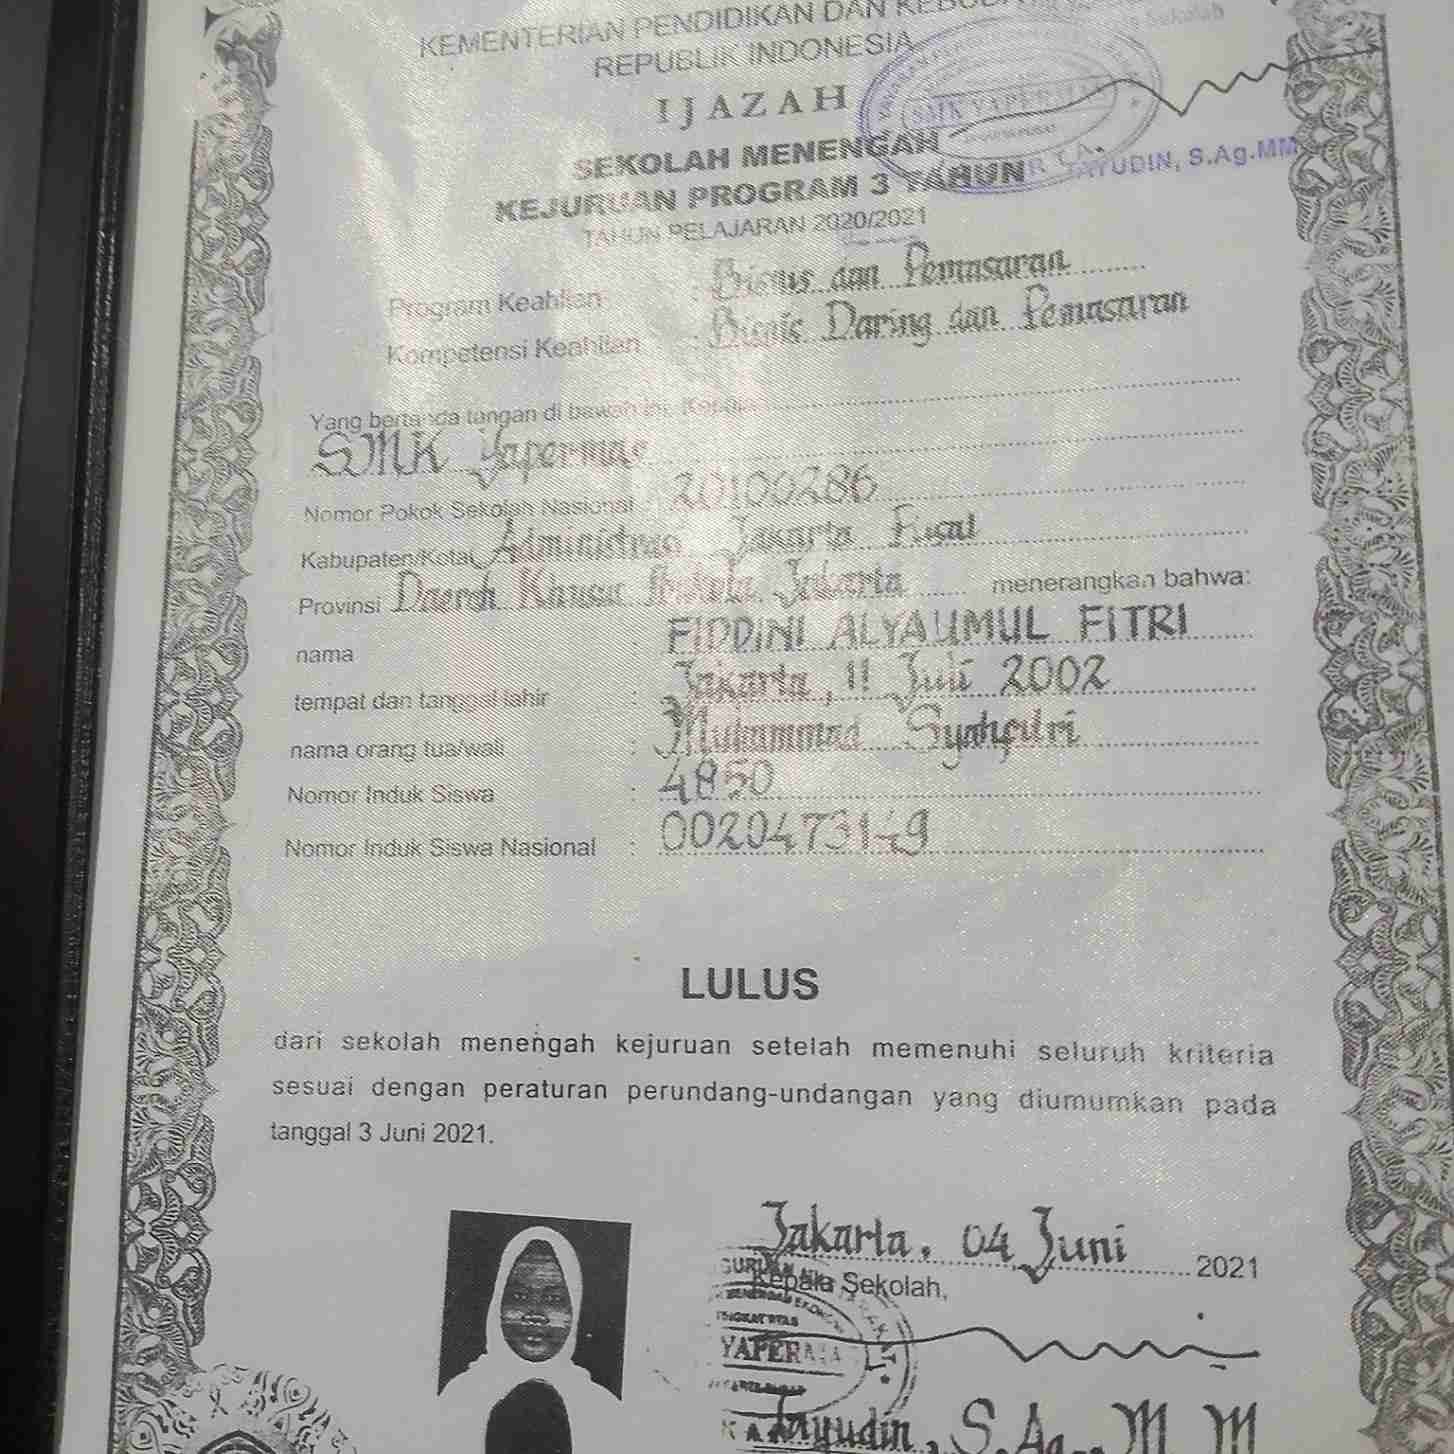 KEMENTERIAN PENDIDIKAN DAN
REPUBLIK INDONESIA
Sekolah
IJAZAH
SMK YAPERMAS
SEKOLAH MENENGAH
KEJURUAN PROGRAM 3 TAHUN
AYUDIN, S.Ag.MM
TAHUN PELAJARAN 2020/2021
Program Keahlian : Bisnis dan Pemasaran
Kompetensi Keahlian : Bisnis Daring dan Pemasaran
Yang bertanda tangan di bawah ini, Kepala
SMK Yapermas
Nomor Pokok Sekolah Nasional : 20100286
Kabupaten/Kota Administrasi Jakarta Pusat
Provinsi Daerah Khusus Ibukota Jakarta menerangkan bahwa:
nama FIDDINI ALYAUMUL FITRI
tempat dan tanggal lahir : Jakarta, 11 Juli 2002
nama orang tua/wali : Muhammad Syahfitri
Nomor Induk Siswa : 4850
Nomor Induk Siswa Nasional : 0020473149
LULUS
dari sekolah menengah kejuruan setelah memenuhi seluruh kriteria
sesuai dengan peraturan perundang-undangan yang diumumkan pada
tanggal 3 Juni 2021.
Jakarta, 04 Juni 2021
Kepala Sekolah,
Tayudin, S.Ag., M M